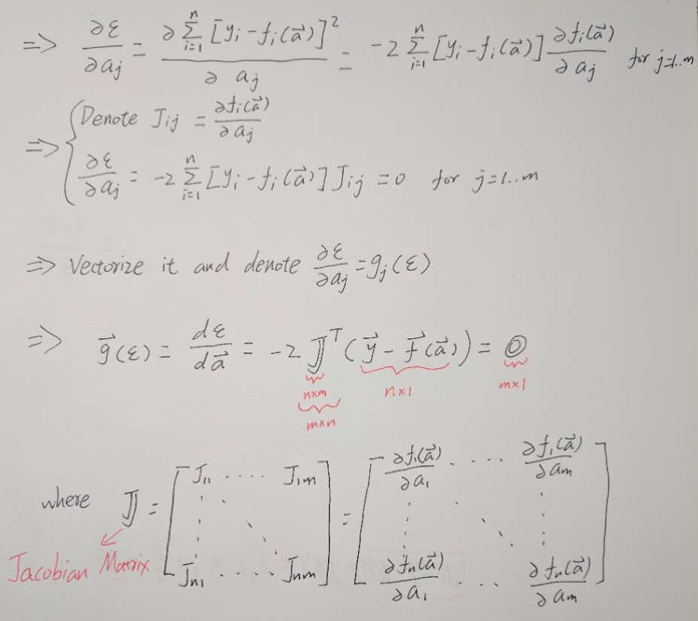 => ∂ε/∂aj = ∂ Σ_{i=1}^{n} [yi - fi(a⃗)]² / ∂aj = -2 Σ_{i=1}^{n} [yi - fi(a⃗)] ∂fi(a⃗)/∂aj for j=1..m
=> { Denote Jij = ∂fi(a⃗)/∂aj
∂ε/∂aj = -2 Σ_{i=1}^{n} [yi - fi(a⃗)] Jij = 0 for j=1..m
=> Vectorize it and denote ∂ε/∂aj = gj(ε)
=> g⃗(ε) = dε/da⃗ = -2 𝕁ᵀ (y⃗ - f⃗(a⃗)) = 𝟘
n×m n×1 m×1
m×n
where 𝕁 = [ J11 .... J1m ; ⋮ ⋱ ⋮ ; Jn1 .... Jnm ] = [ ∂f1(a⃗)/∂a1 .... ∂f1(a⃗)/∂am ; ⋮ ⋱ ⋮ ; ∂fn(a⃗)/∂a1 ... ∂fn(a⃗)/∂am ]
Jacobian Matrix